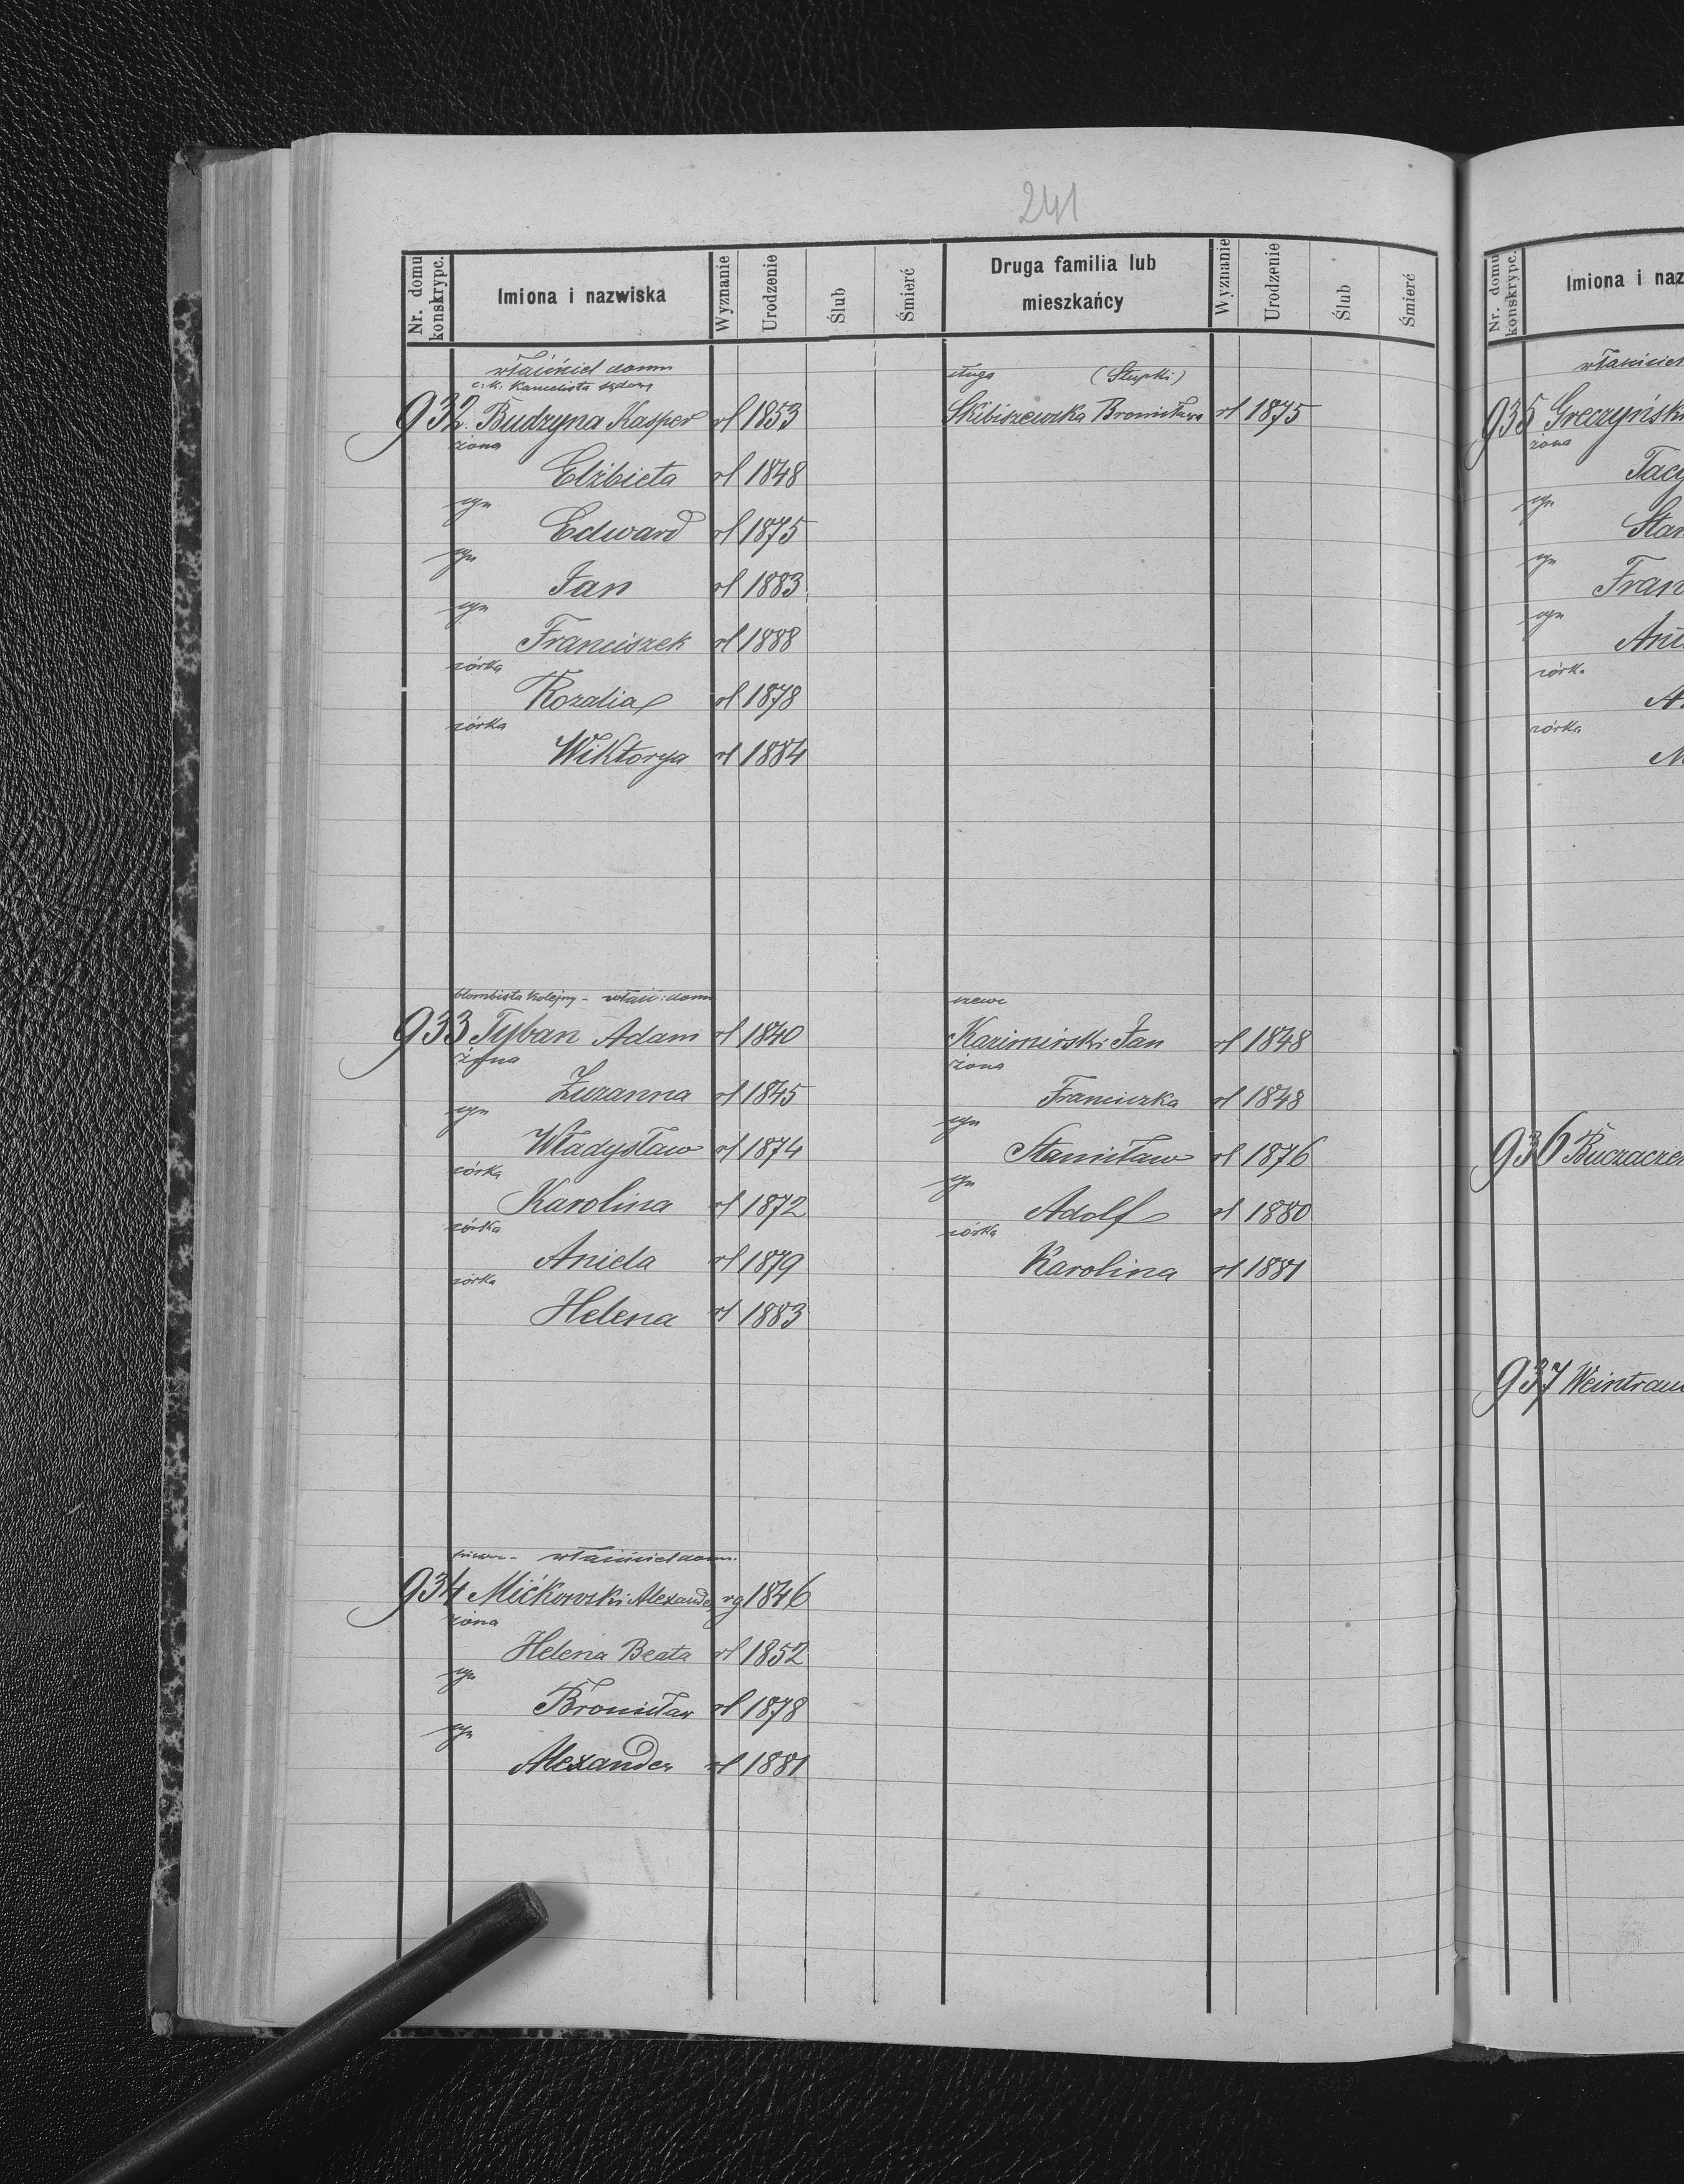 241
Nr. domu konskrypc. Imiona i nazwiska Wyznanie Urodzenie Ślub Śmierć Druga familia lub mieszkańcy Wyznanie Urodzenie Ślub Śmierć
właściciel domu
c: k. Kancelista sądowy
932. Budzyna Kasper rl 1853
żona
Elżbieta rl 1848
syn
Edward rl 1875
syn
Jan rl 1883
syn
Franciszek rl 1888
córka
Rozalia rl 1878
córka
Wiktorya rl 1884
sługa (Słupki)
Skibiszewska Bronisława rl 1875
blombista kolejny - właśc: domu
933 Tyban Adam rl 1840
żona
Zuzanna rl 1845
syn
Władysław rl 1874
córka
Karolina rl 1872
córka
Aniela rl 1879
córka
Helena rl 1883
szewc
Kazimirski Jan rl 1848
żona
Franciszka rl 1848
syn
Stanisław rl 1876
syn
Adolf rl 1880
córka
Karolina rl 1881
właściciel domu
934 Mićkowski Alexander rg 1846
żona
Helena Beata rl 1852
syn
Bronisław rl 1878
syn
Alexander rl 1881
Nr. domu konskrypc. Imiona i naz
właściciel
935 Greczyńsk
żona
Tacy
syn
Stan
syn
Fran
syn
Ani
córka
A
córka
M
936 Buczacze
937 Weintrau